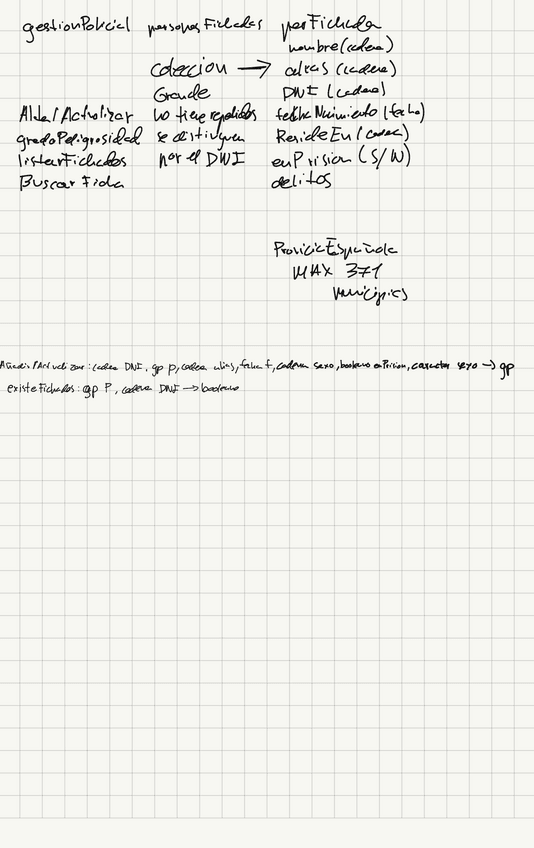 gestionPolicial personasFichadas perFichada
nombre (cadena)
coleccion → alias (cadena)
Grande DNI (cadena)
Añadir/Actualizar no tiene repetidos fechaNacimiento (fecha)
gradoPeligrosidad se distinguen ResideEn (cadena)
listarFichados por el DNI enPrision (S/N)
BuscarFicha delitos
ProvinciaEspañola
MAX 371
municipios
Añadir/Actualizar: cadena DNI, gp p, cadena alias, fecha f, cadena sexo, booleano enPrision, caracter sexo → gp
existeFichados: gp P, cadena DNI → booleano